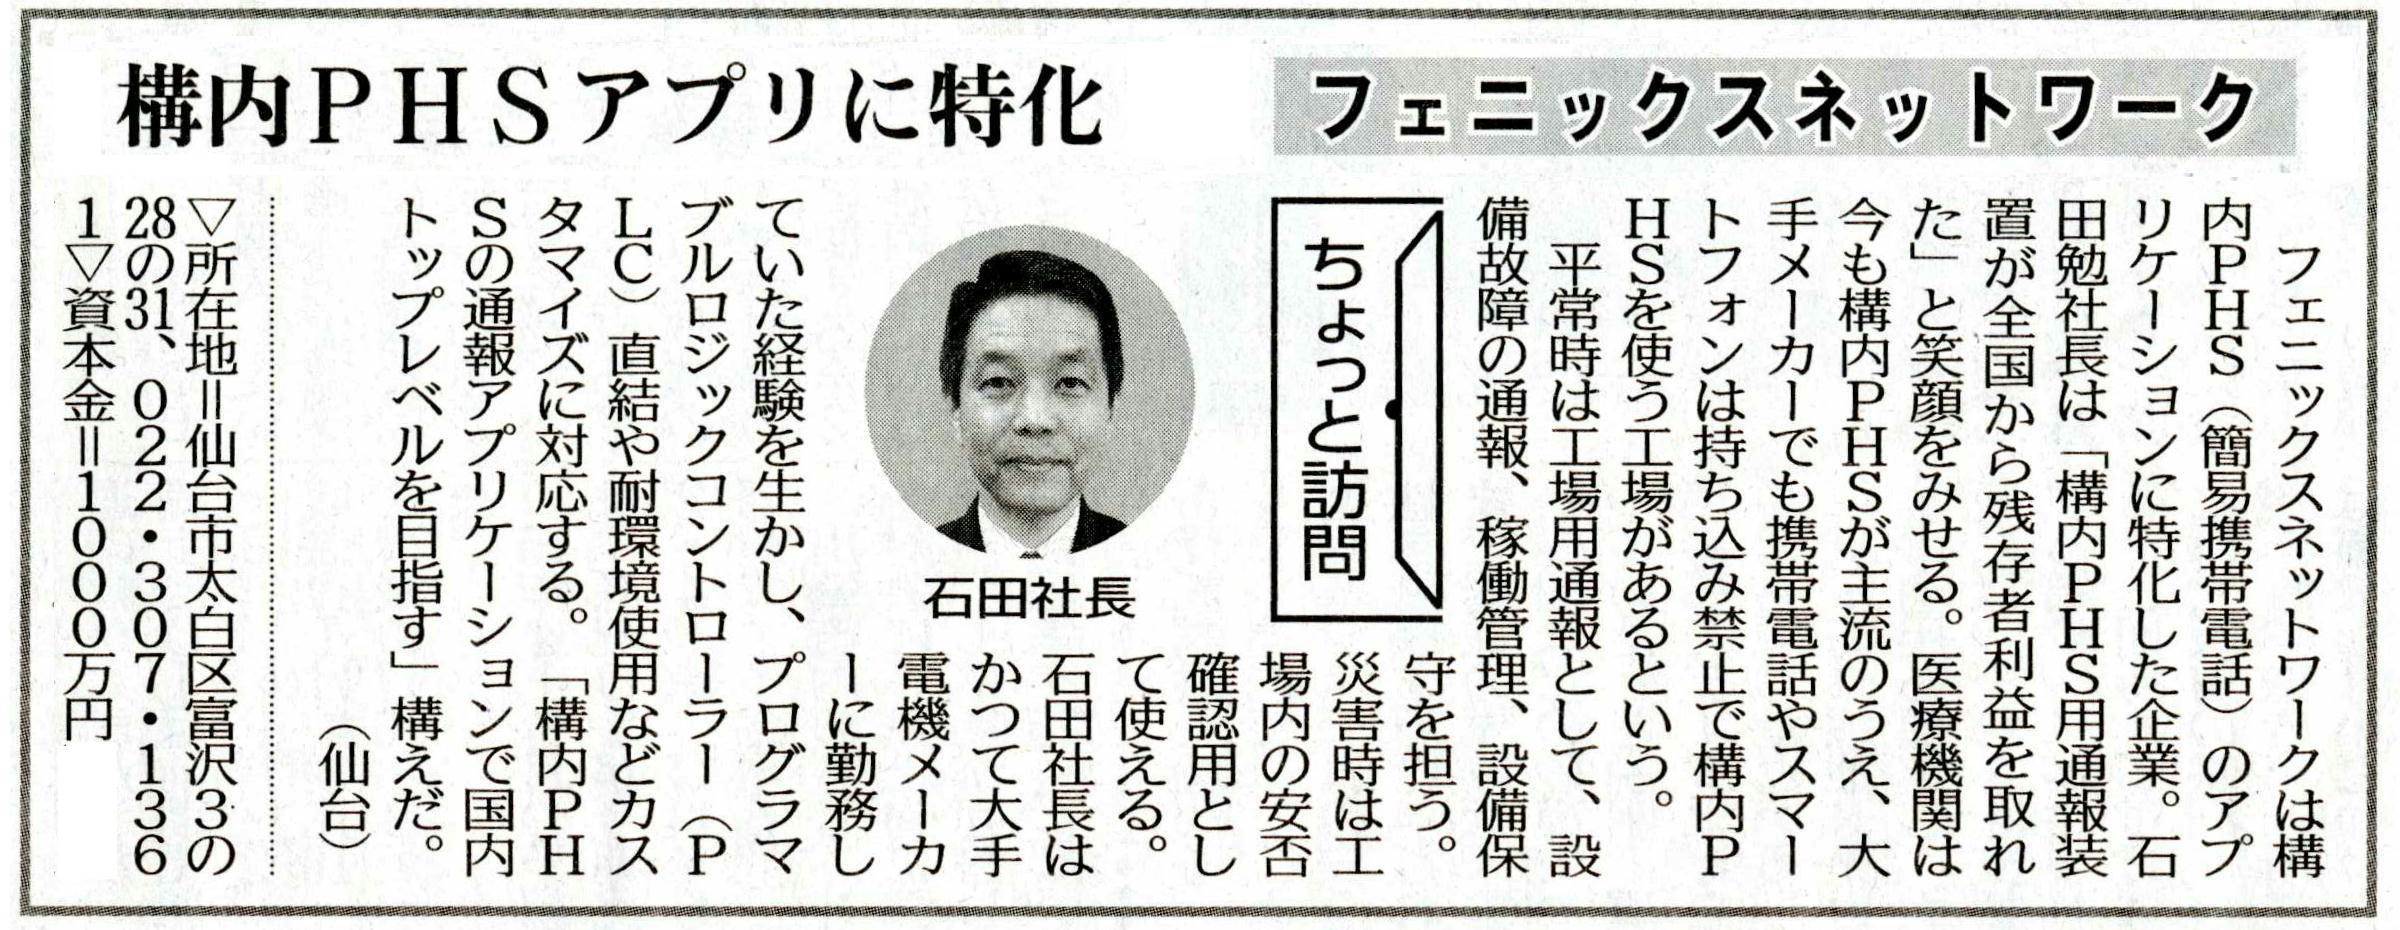 フェニックスネットワーク
構内ＰＨＳアプリに特化
ちょっと訪問
フェニックスネットワークは構
内ＰＨＳ（簡易携帯電話）のアプ
リケーションに特化した企業。石
田勉社長は「構内ＰＨＳ用通報装
置が全国から残存者利益を取れ
た」と笑顔をみせる。医療機関は
今も構内ＰＨＳが主流のうえ、大
手メーカーでも携帯電話やスマー
トフォンは持ち込み禁止で構内Ｐ
ＨＳを使う工場があるという。
平常時は工場用通報として、設
備故障の通報、稼働管理、設備保
守を担う。
災害時は工
場内の安否
確認用とし
て使える。
石田社長は
かつて大手
電機メーカ
ーに勤務し
石田社長
ていた経験を生かし、プログラマ
ブルロジックコントローラー（Ｐ
ＬＣ）直結や耐環境使用などカス
タマイズに対応する。「構内ＰＨ
Ｓの通報アプリケーションで国内
トップレベルを目指す」構えだ。
（仙台）
▽所在地＝仙台市太白区富沢３の
28の31、０２２・３０７・１３６
１▽資本金＝１０００万円